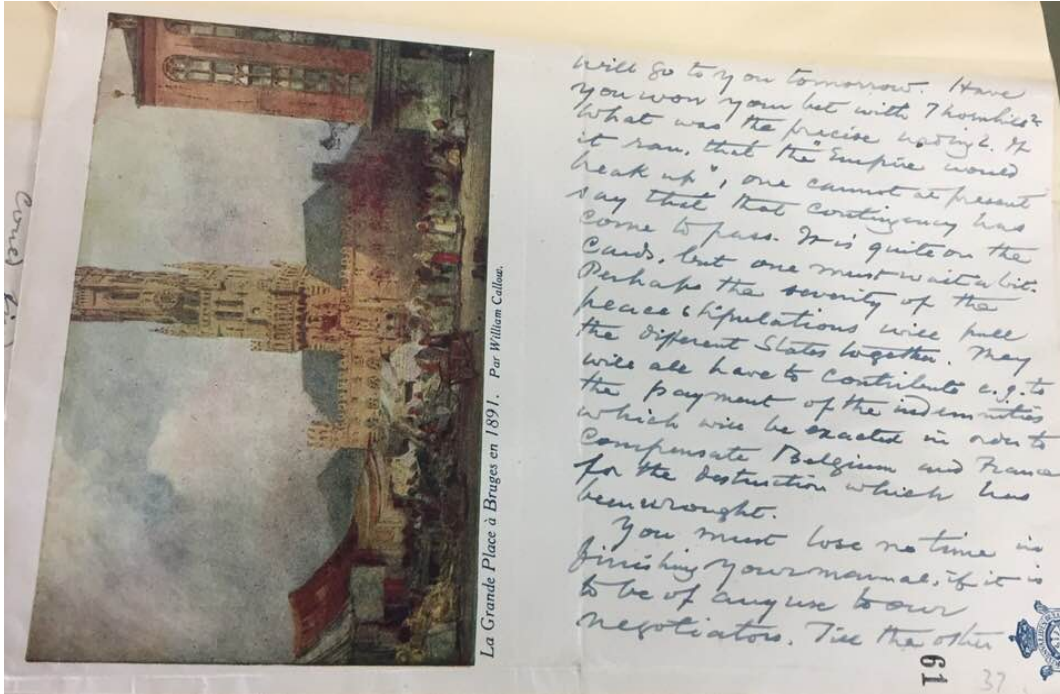 will go to you tomorrow. Have
you won your bet with Thornhill?
What was the precise wording? If
it ran, that the "Empire would
break up", one cannot at present
say that that contingency has
come to pass. It is quite on the
cards, but one must wait a bit.
Perhaps the severity of the
peace stipulations will pull
the different States together. They
will all have to contribute e.g. to
the payment of the indemnities
which will be exacted in order to
compensate Belgium and France
for the destruction which has
been wrought.
You must lose no time in
finishing your manual, if it is
to be of any use to our
negotiators. Till the other
La Grande Place à Bruges en 1891. Par William Callow.
61
37